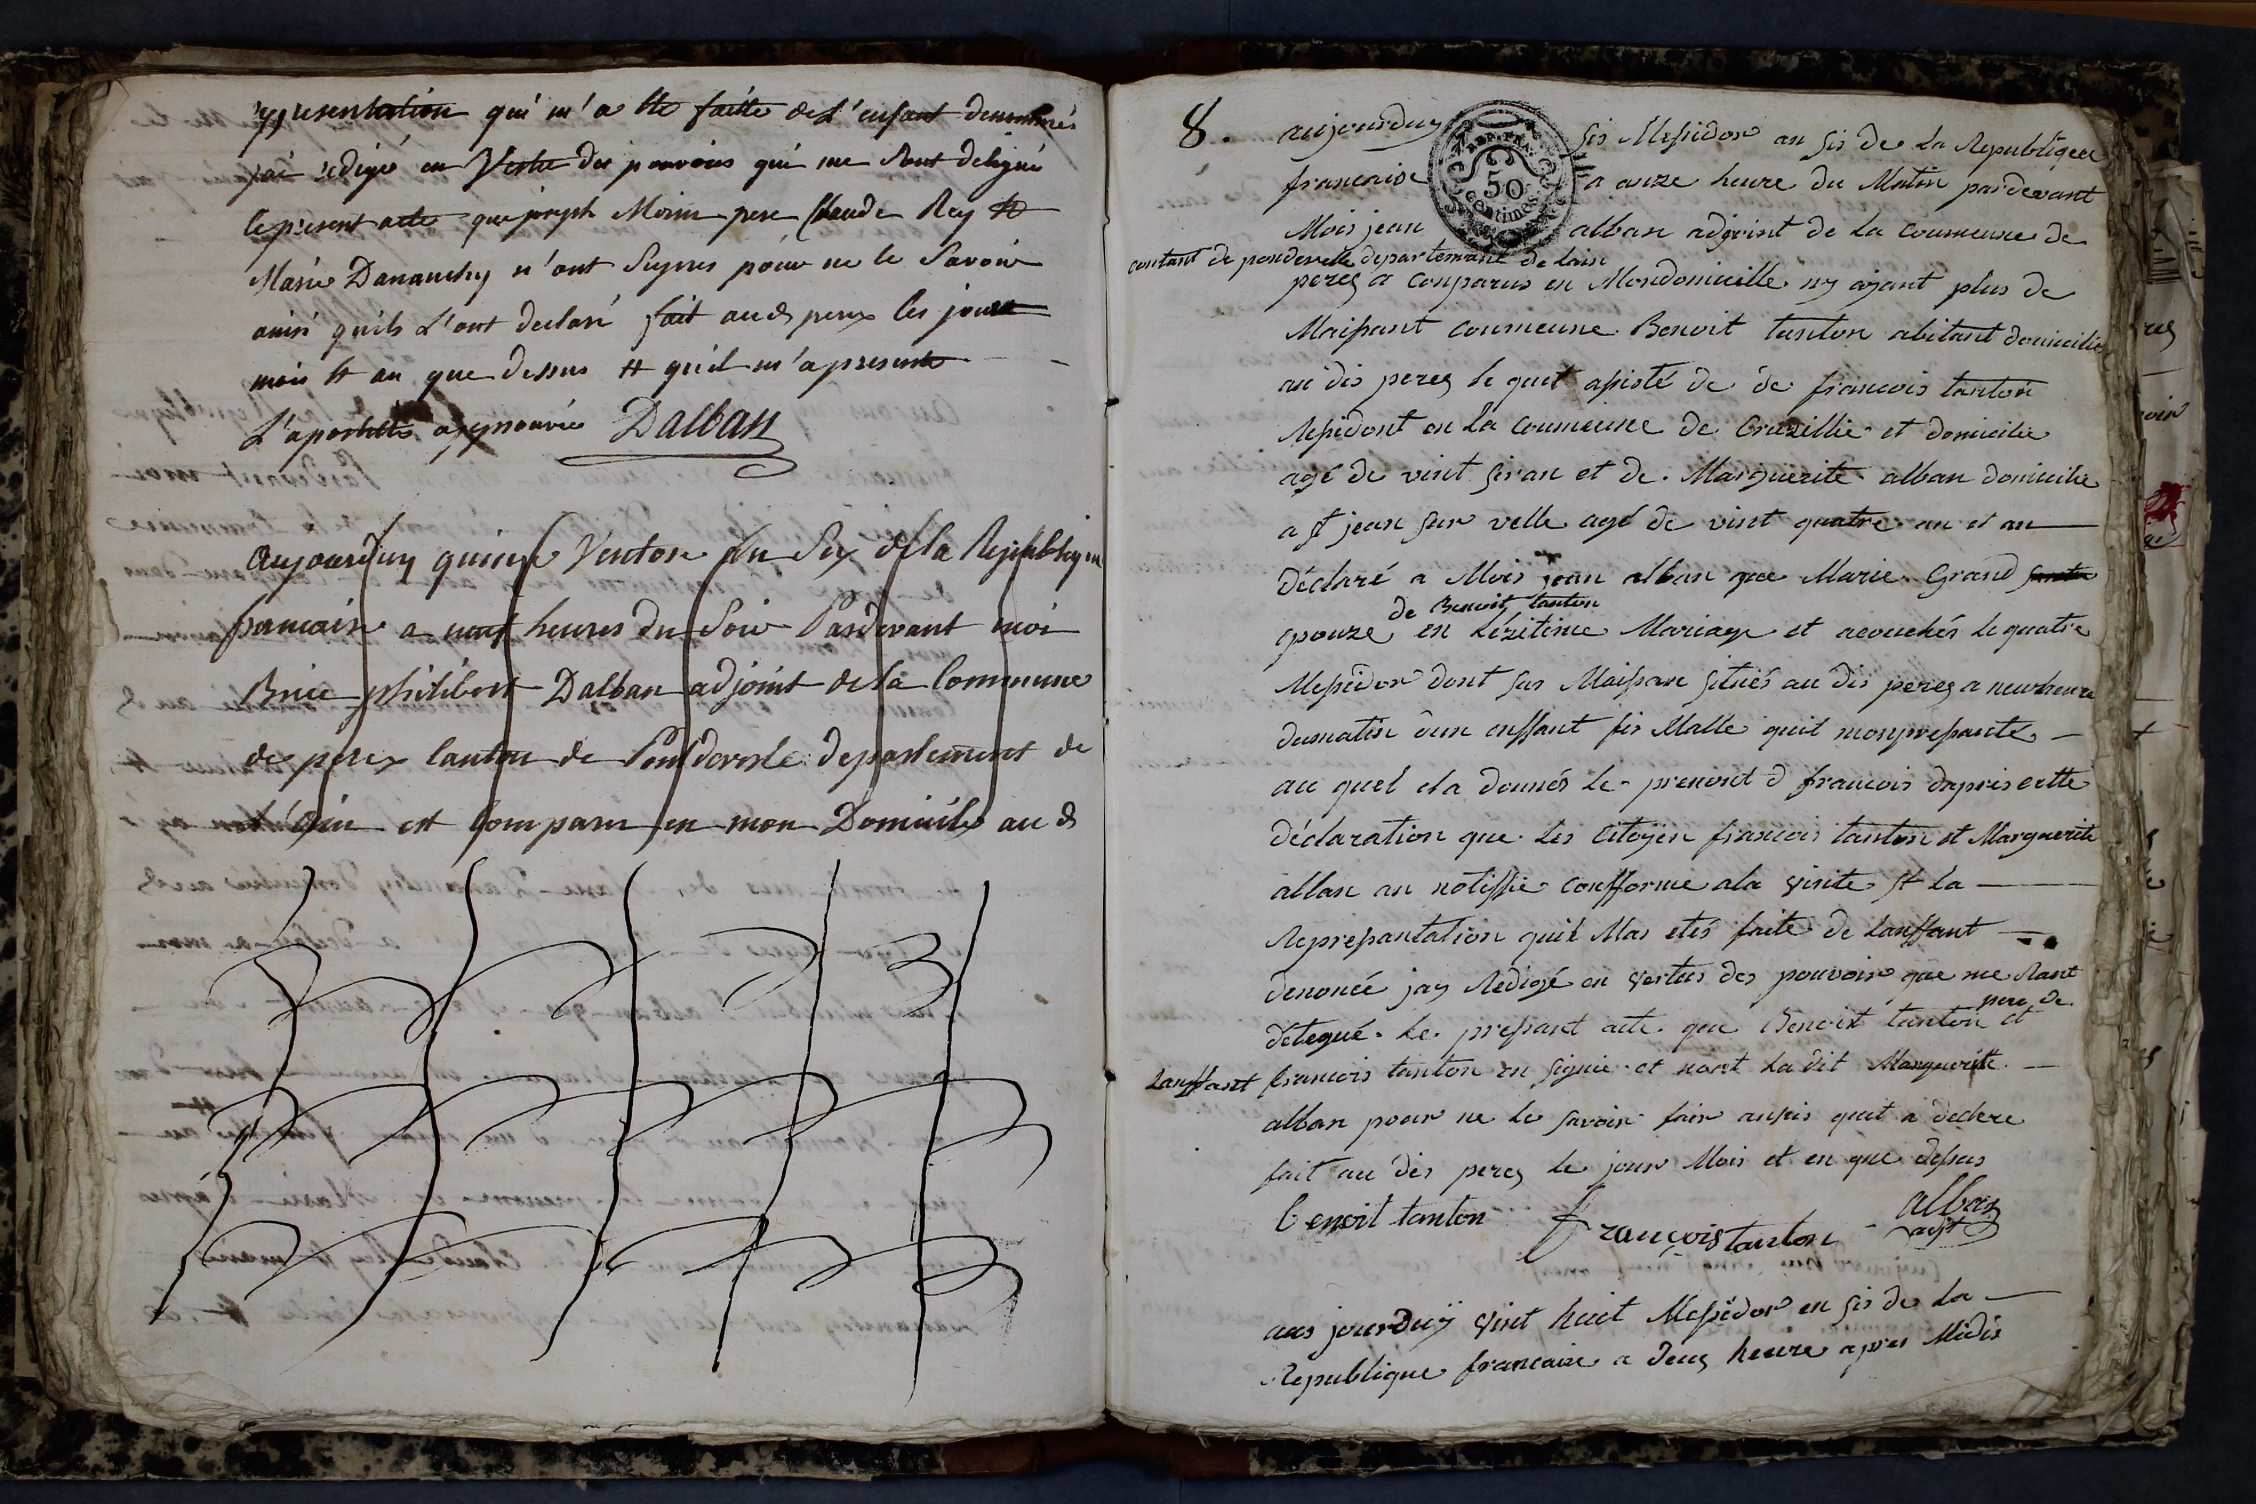 representation qui m'a ete faitte de L'enfant denommés
j'ai redigé en Vertu des pouvoirs qui me sont delegué
le present acte que joseph Morin pere Claude Rey et
Marie Dananchy n'ont Signes pour ne le Savoir
ainsi qu'ils L'ont declaré fait aud perex les jour
mois et an que dessus et qu'il m'a presente
L'apostille approuvée Dalban
aujourd'uy quinze Ventose an Six de la Republique
francaise a neuf heures du Soir Pardevant moi
Brice philibert Dalban adjoint de la Commune
de perex Canton de Pontdevesle departement de
L'ain est Comparu en mon Domicile au d
8. aujourduy sis Messidor an sis de La Republique
francaise a onze heure du Matin pardevant
Mois jean alban adjoint de La coumeune de
contant de pondevelle departemant de lain
perez a conparus en Mondomicille ny ajant plus de
Maissant coumeune Benoit tanton abitant domicilie
au dis perez le quel assisté de de francois tanton
Residont en La coumeune de Cruzillie et domicilie
agé de vint sis an et de Marguerite alban domicilie
a St jean sur velle agé de vint quatre an et an
Déclaré a Mois jean alban que Marie Grand
de Benoit tanton
epouze en Lézitime Mariage et acouchés le quatre
Messidor dont sas Maissan situés au dis perez a neuvheure
dumatin dun enffant sis Malle quil monpresante
au quel ela donnés le prenont d francois dapris cette
déclaration que Les Citoyen francois tanton et Marguerite
alban an notissie confforme ala visite et La
Represantation quil Mas etés faite de Lanffant
denonée jay Redigé en vertus des pouvoir que me sant
pere de
délegué le pressant acte que Benoit tanton et
Lanffant francois tanton on signie et nont La dit Marguerite
alban pour ne le savoir fair ansis quil a declere
fait au dis perez le jour Mois et en que dessus
Benoit tanton françois tanton alban
adjt
aus jourduÿ vint huit Messidor en sis de La
Republique francaise a deus heure apres Midis
50
centimes